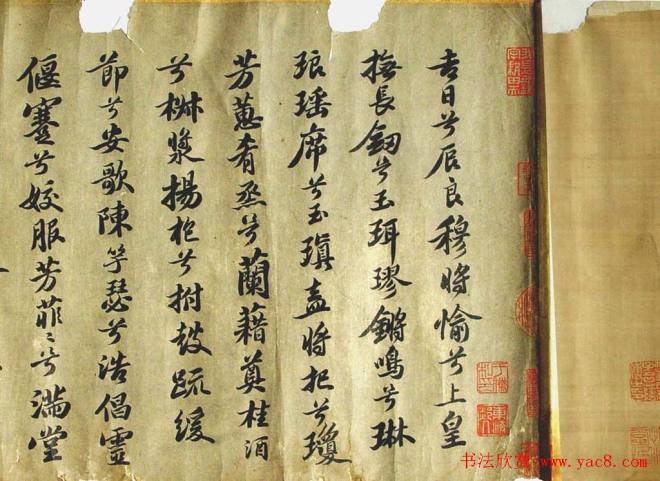 吉日兮辰良穆将愉兮上皇
撫長劔兮玉珥璆鏘鳴兮琳
琅瑶席兮玉瑱盍将把兮瓊
芳蕙肴烝兮蘭藉奠桂酒
兮椒漿揚枹兮拊鼓疏緩
節兮安歌陳竽瑟兮浩倡靈
偃蹇兮姣服芳菲〻兮滿堂
书法欣赏 www.yac8.com